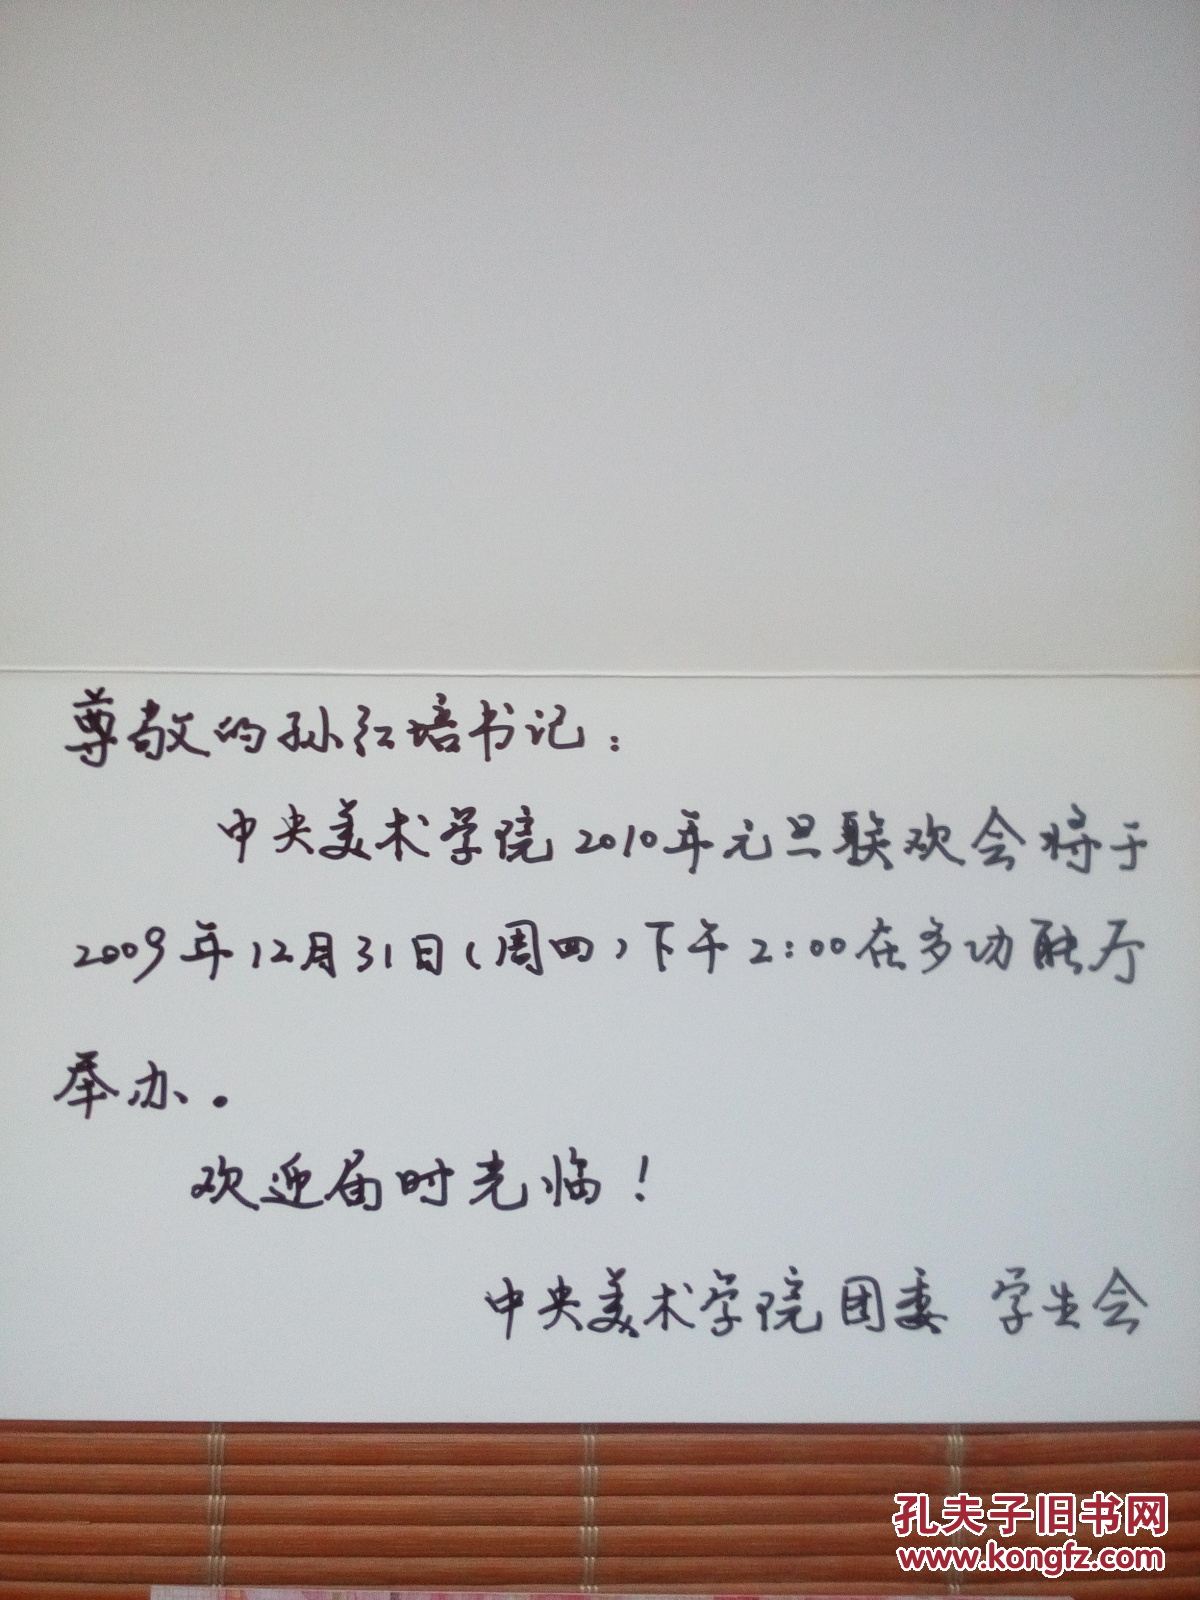 尊敬的孙红培书记：
中央美术学院2010年元旦联欢会将于
2009年12月31日(周四)下午2:00在多功能厅
举办.
欢迎届时光临!
中央美术学院团委 学生会
孔夫子旧书网
www.kongfz.com